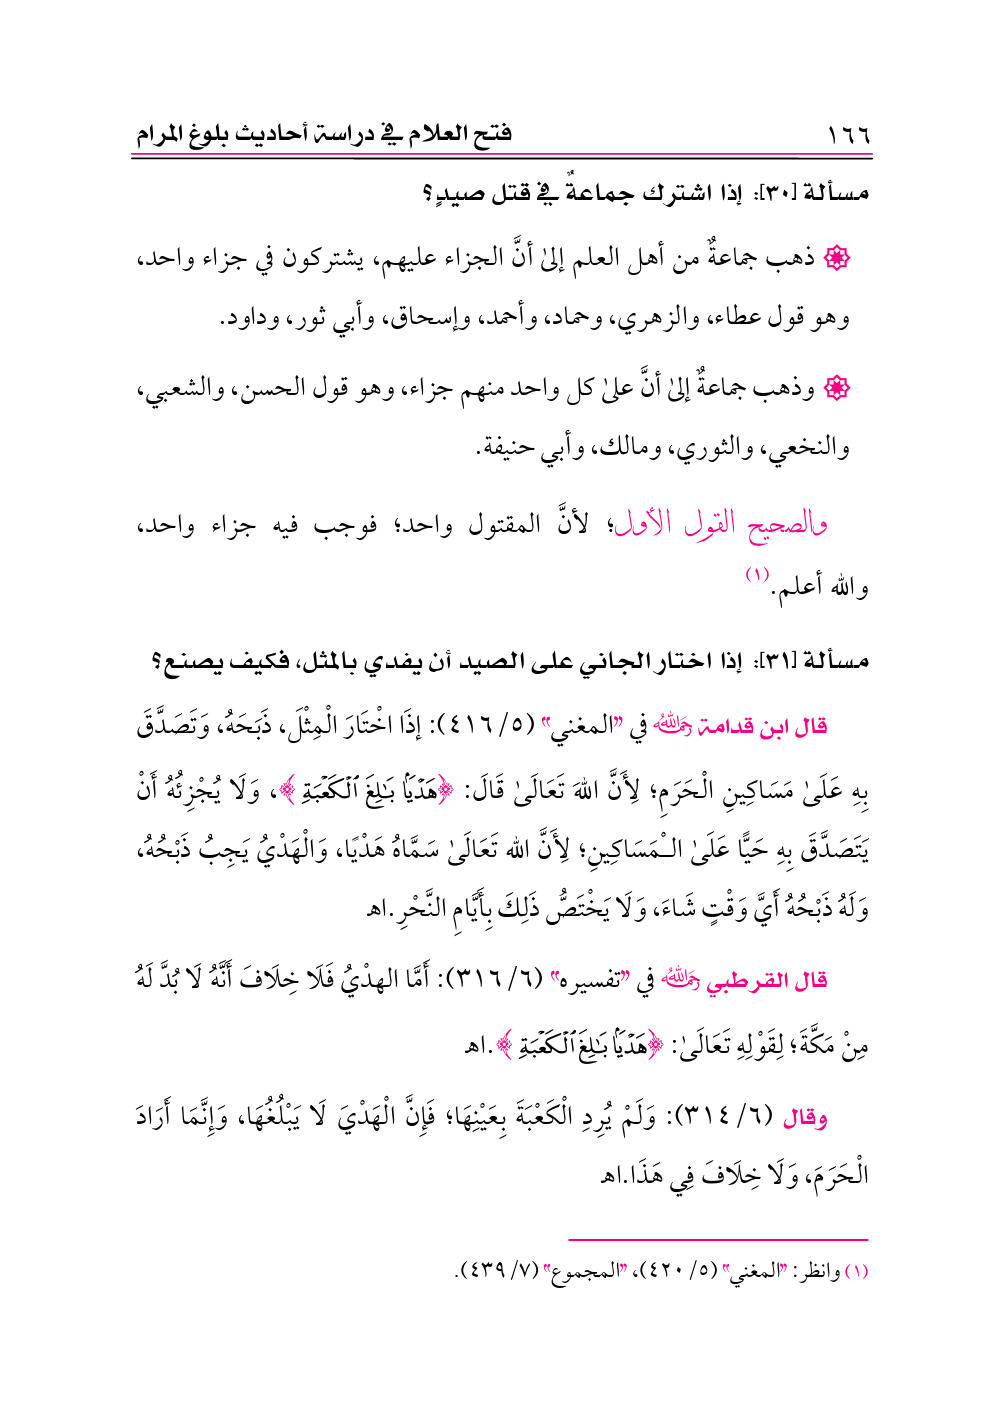 ١٦٦ فتح العلام في دراسة أحاديث بلوغ المرام
مسألة [٣٠]: إذا اشترك جماعةٌ في قتل صيدٍ؟
ذهب جماعةٌ من أهل العلم إلىٰ أنَّ الجزاء عليهم، يشتركون في جزاء واحد،
وهو قول عطاء، والزهري، وحماد، وأحمد، وإسحاق، وأبي ثور، وداود.
وذهب جماعةٌ إلىٰ أنَّ علىٰ كل واحد منهم جزاء، وهو قول الحسن، والشعبي،
والنخعي، والثوري، ومالك، وأبي حنيفة.
والصحيح القول الأول؛ لأنَّ المقتول واحد؛ فوجب فيه جزاء واحد،
والله أعلم.(١)
مسألة [٣١]: إذا اختار الجاني على الصيد أن يفدي بالمثل، فكيف يصنع؟
قال ابن قدامة رحمه الله في "المغني" (٥/ ٤١٦): إذَا اخْتَارَ الْمِثْلَ، ذَبَحَهُ، وَتَصَدَّقَ
بِهِ عَلَىٰ مَسَاكِينِ الْحَرَمِ؛ لِأَنَّ اللهَ تَعَالَىٰ قَالَ: ﴿هَدْيًۢا بَٰلِغَ ٱلْكَعْبَةِ﴾، وَلَا يُجْزِئُهُ أَنْ
يَتَصَدَّقَ بِهِ حَيًّا عَلَىٰ الْـمَسَاكِينِ؛ لِأَنَّ الله تَعَالَىٰ سَمَّاهُ هَدْيًا، وَالْهَدْيُ يَجِبُ ذَبْحُهُ،
وَلَهُ ذَبْحُهُ أَيَّ وَقْتٍ شَاءَ، وَلَا يَخْتَصُّ ذَلِكَ بِأَيَّامِ النَّحْرِ.اﻫ
قال القرطبي رحمه الله في "تفسيره" (٦/ ٣١٦): أَمَّا الهدْيُ فَلَا خِلَافَ أَنَّهُ لَا بُدَّ لَهُ
مِنْ مَكَّةَ؛ لِقَوْلِهِ تَعَالَىٰ: ﴿هَدْيًۢا بَٰلِغَ ٱلْكَعْبَةِ﴾.اﻫ
وقال (٦/ ٣١٤): وَلَمْ يُرِدِ الْكَعْبَةَ بِعَيْنِهَا؛ فَإِنَّ الْهَدْيَ لَا يَبْلُغُهَا، وَإِنَّمَا أَرَادَ
الْحَرَمَ، وَلَا خِلَافَ فِي هَذَا.اﻫ
(١) وانظر: "المغني" (٥/ ٤٢٠)، "المجموع" (٧/ ٤٣٩).